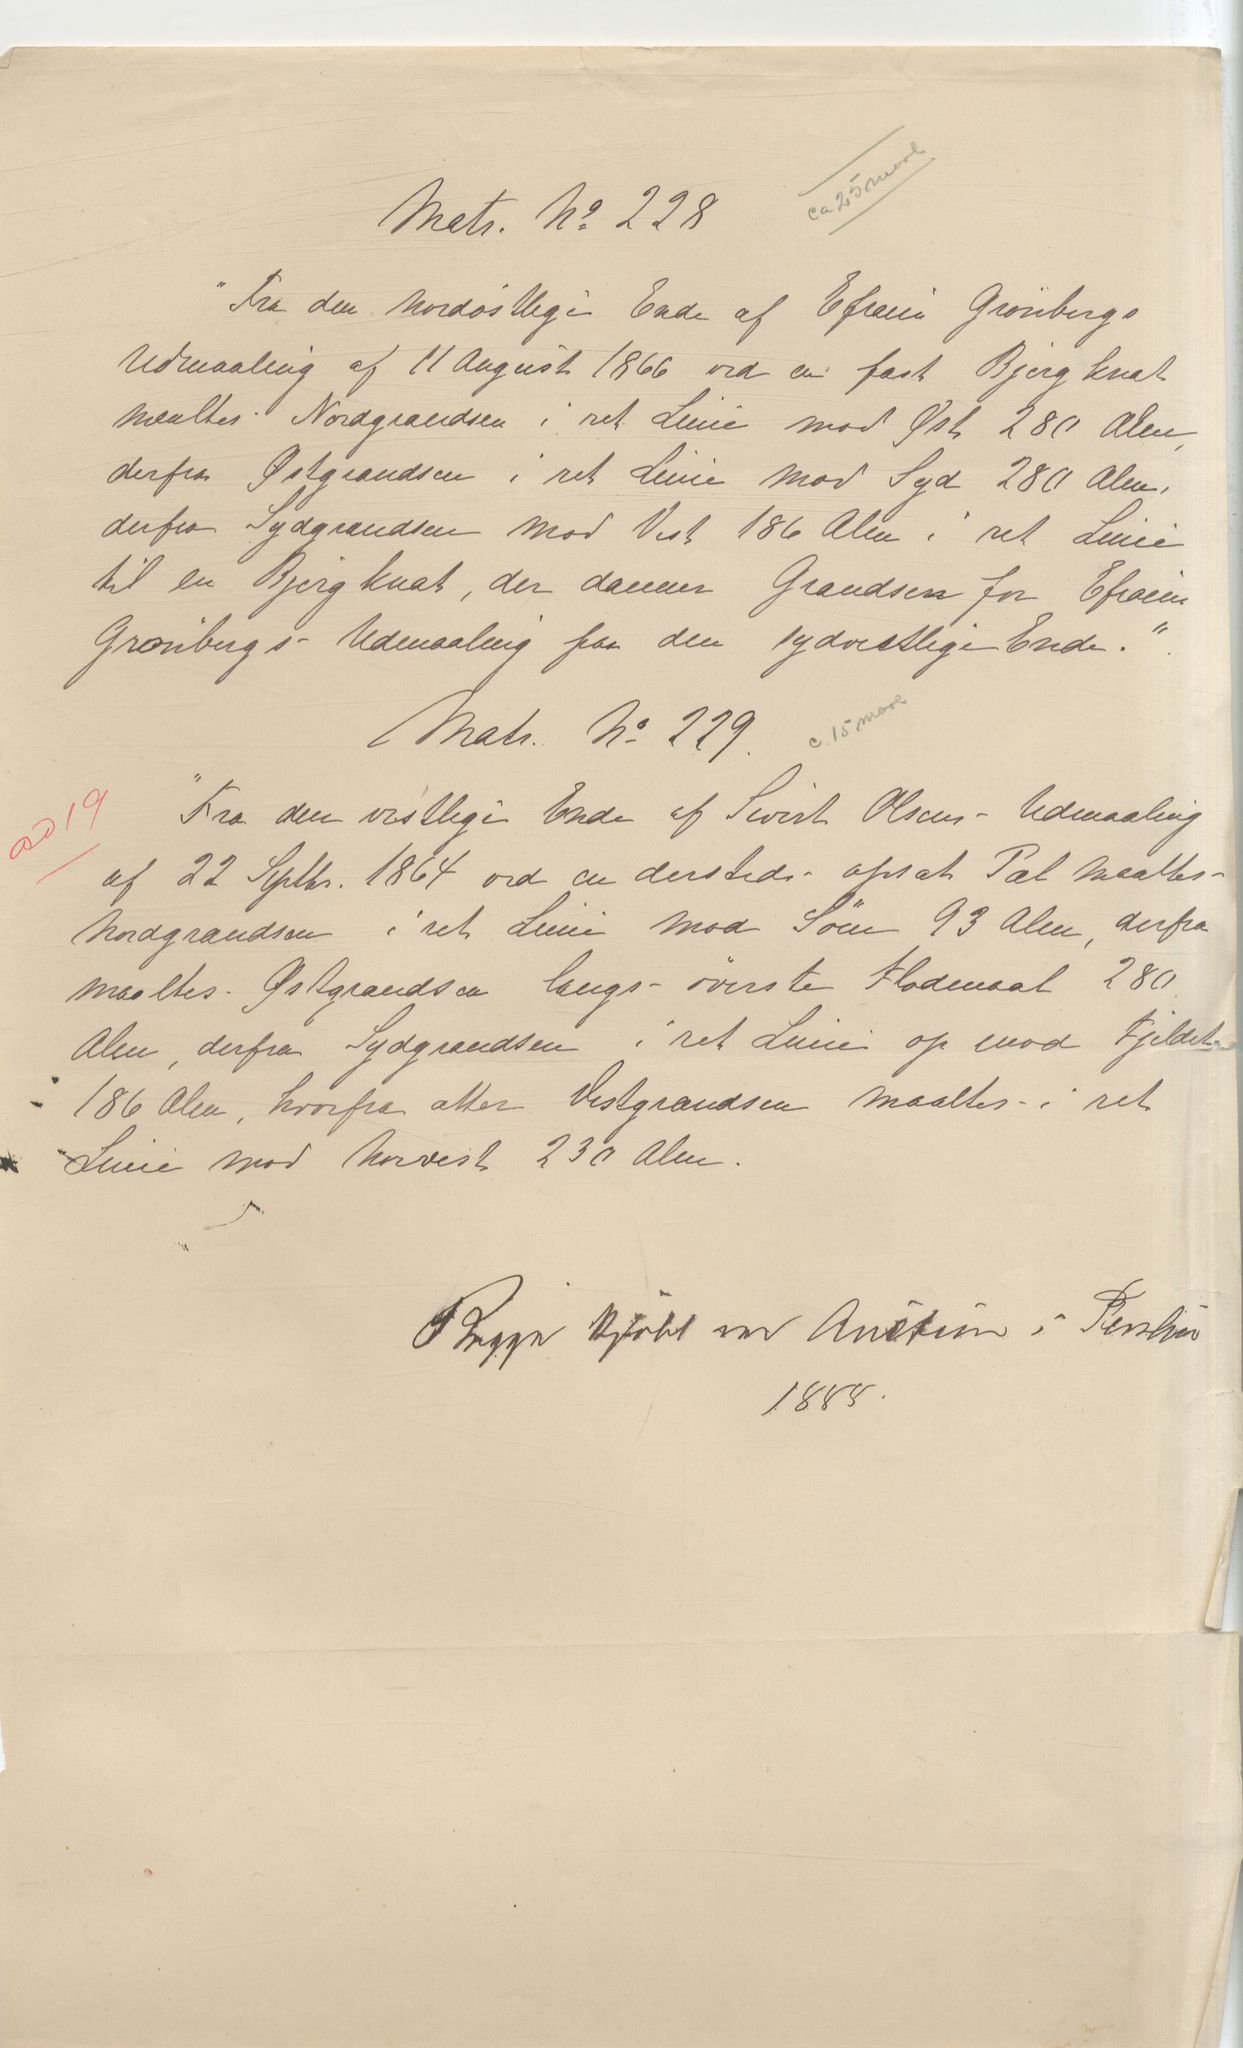 ca 25 maal
Matr. No 228
"Fra den nordöstlige Ende af Efraim Grönbergs
Udmaaling af 11 August 1866 ved en fast Bjergknat
maaltes Nordgrændsen i ret Linie mod Øst 280 Alen,
derfra Østgrændsen i ret Linie mod Syd 280 Alen,
derfra Sydgrændsen mod Vest 186 Alen i ret Linie
til en Bjergknat, der danner Grændsen for Efraim
Grönbergs Udmaaling paa den sydvestlige Ende."
Matr. No 229.
c. 15 maal
"Fra den vestlige Ende af Sivert Olsens Udmaaling
ad 19
af 22 Septbr. 1864 ved en dersteds opsat Pæl maaltes
Nordgrændsen i ret Linie mod Söen 93 Alen, derfra
maaltes Østgrændsen langs överste Flodemaal 280
Alen, derfra Sydgrændsen i ret Linie op mod Fjeldet
186 Alen, hvorfra atter Vestgrændsen maaltes i ret
Linie mod Norvest 230 Alen.
Begge kjöbt ved Auction i
1888.